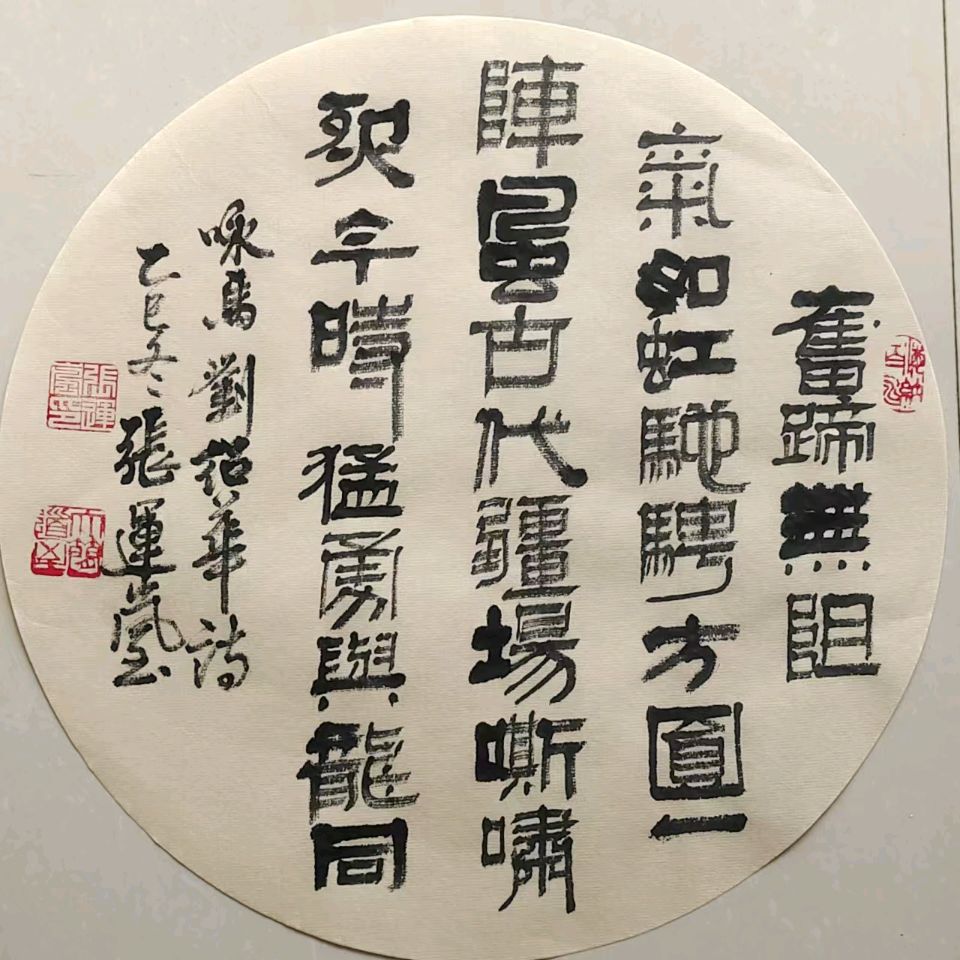 奮蹄無阻
氣如虹馳騁方圓一
陣風古代疆場嘶嘯
烈今時猛勇與龍同
咏馬劉紹華詩
乙巳冬張運